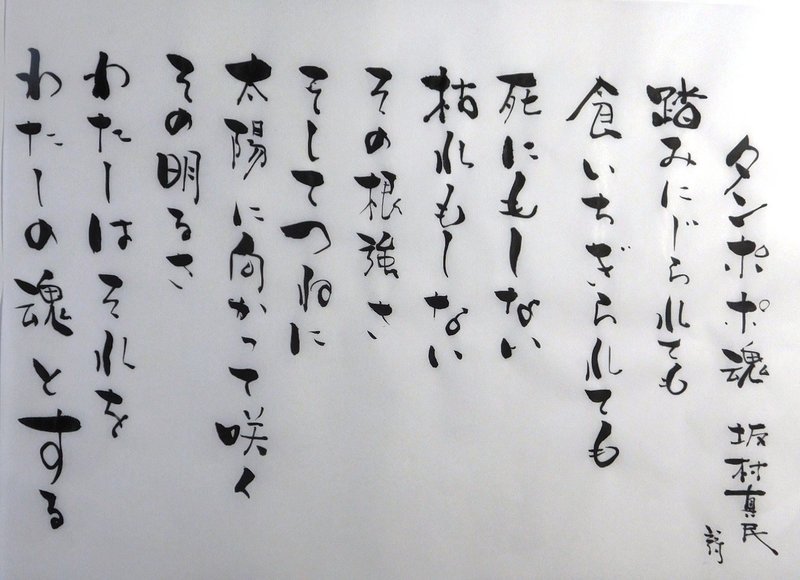 タンポポ魂 坂村真民 詩
踏みにじられても
食いちぎられても
死にもしない
枯れもしない
その根強さ
そしてつねに
太陽に向かって咲く
その明るさ
わたしはそれを
わたしの魂とする